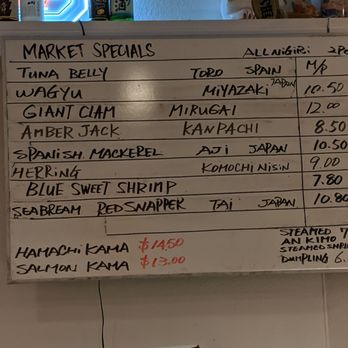 MARKET SPECIALS ALL NIGIRI: 2P
TUNA BELLY TORO SPAIN M/P
WAGYU MIYAZAKI JAPAN 10.50
GIANT CLAM MIRUGAI 12.00
AMBER JACK KANPACHI 8.50
SPANISH MACKEREL AJI JAPAN 10.50
HERRING KOMOCHI NISIN 9.00
BLUE SWEET SHRIMP 7.80
SEABREAM RED SNAPPER TAI JAPAN 10.80
HAMACHI KAMA $14.50
SALMON KAMA $13.00
STEAMED
AN KIMO
STEAMED SHRI
DUMPLING 6.